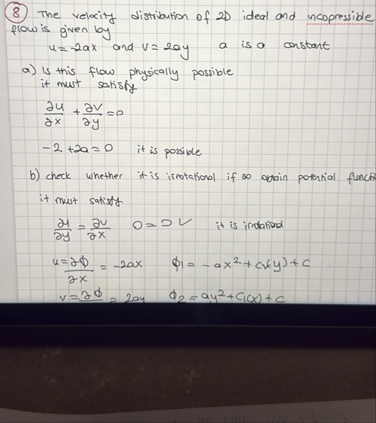 8 The velocity distribution of 2D ideal and incopressible
flow is given by
u=-2ax and v=2ay a is a constant
a) Is this flow physically possible
it must satisfy
∂u/∂x + ∂v/∂y = 0
-2+2a=0 it is possible
b) check whether it is irrotational if so obtain potential functi
it must satisfy
∂u/∂y = ∂v/∂x 0=0 ✓ it is irrotational
u=∂ϕ/∂x = -2ax ϕ1=-ax²+c1(y)+c
v=∂ϕ = 2ay ϕ2=ay²+C1(x)+c